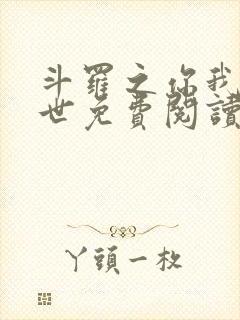 斗羅之你我
世免費閱讀
丫頭一枚